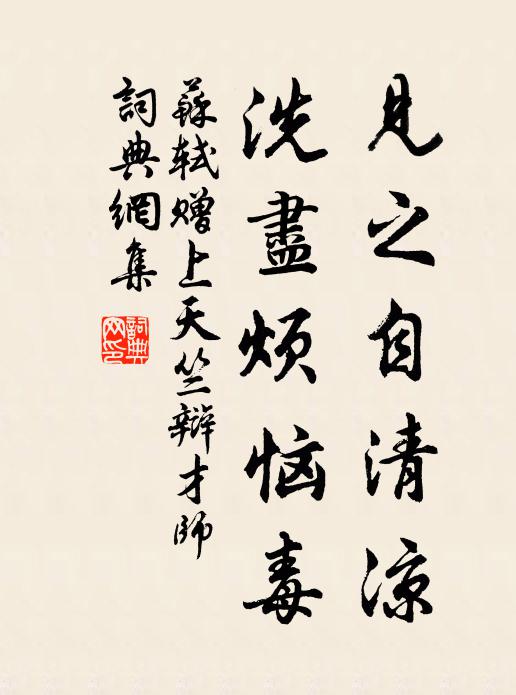 見之自清涼
洗盡煩恼毒
蘇軾赠上天竺辯才師
詞典網集
詞典网印